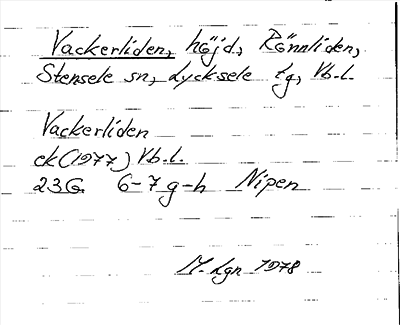 Vackerliden, höjd, Rönnliden,
Stensele sn, Lycksele lg, Vb.l.
Vackerliden
ek (1977) Vb.l.
23G 6-7 g-h Nipen
M. Lgn 1978